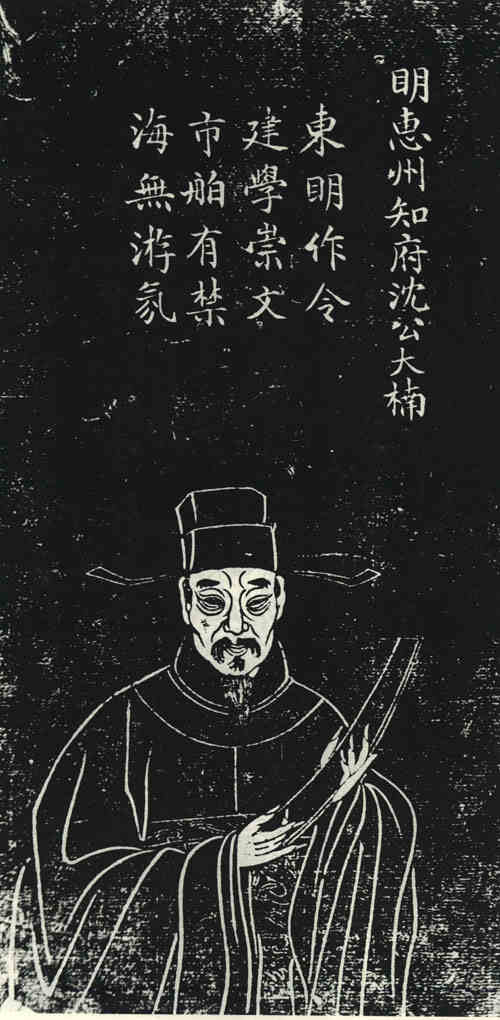 明惠州知府沈公大楠
東明作令
建學崇文
市舶有禁
海無游氛